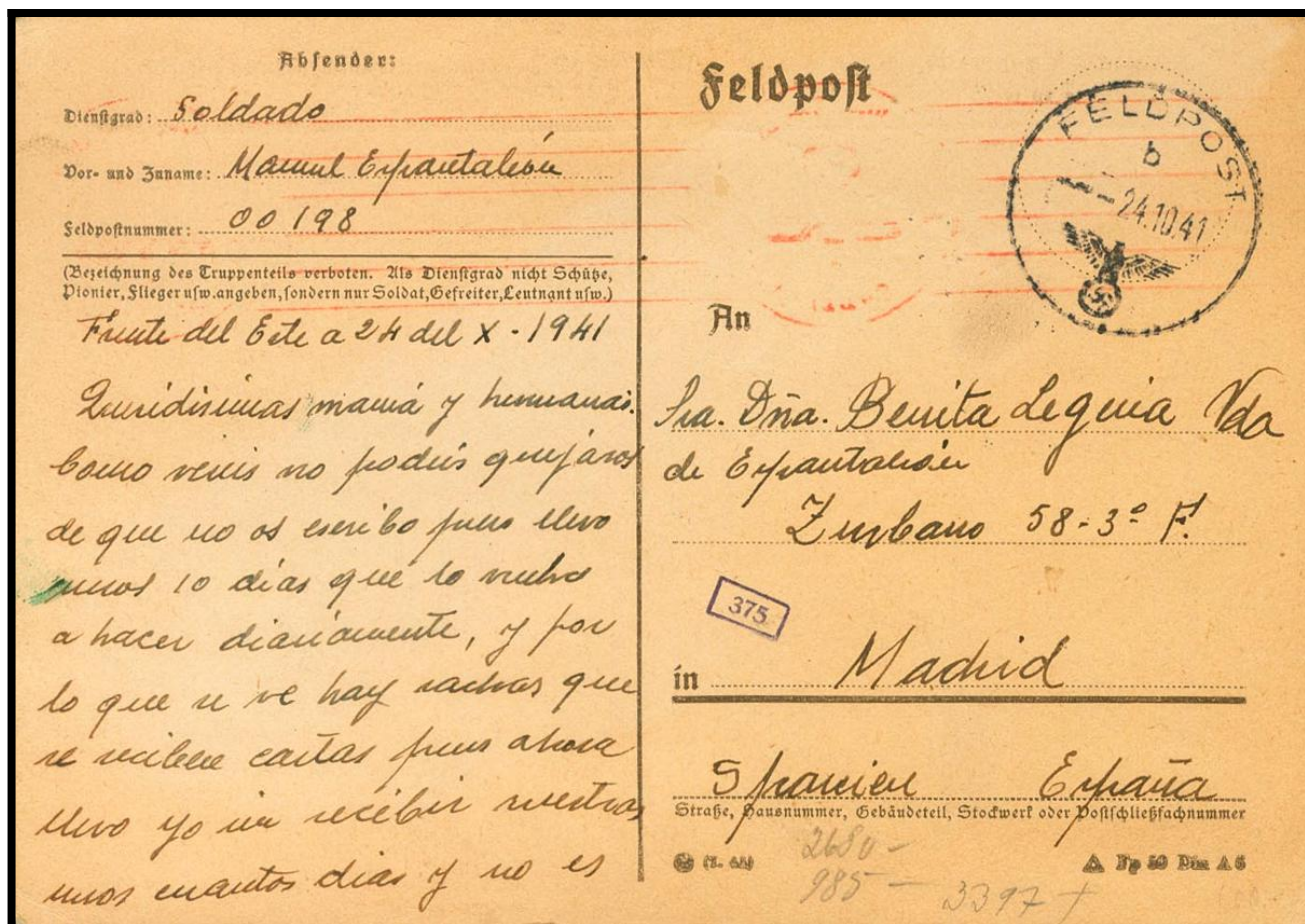 Absender:
Dienstgrad: Soldado
Vor- und Zuname: Manuel Espantaleón
Feldpostnummer: 00198
(Bezeichnung des Truppenteils verboten. Als Dienstgrad nicht Schütze,
Pionier, Flieger usw. angeben, sondern nur Soldat, Gefreiter, Leutnant usw.)
Frente del Este a 24 del X - 1941
Queridisimas mamá y hermanas.
Como veis no podéis quejaros
de que no os escribo pues llevo
unos 10 días que lo vuelvo
a hacer diariamente, y por
lo que se ve hay rachas que
se reciben cartas pues ahora
llevo yo sin recibir vuestras
unos cuantos dias y no es
Feldpost
FELDPOST
b
24.10.41
An
Sra. Dña. Benita Leguia Vda
de Espantaleón
Zurbano 58-3º
375
in Madrid
Spanien España
Straße, Hausnummer, Gebäudeteil, Stockwerk oder Postschließfachnummer
Din A 6
2680 -
985 - 3397 +